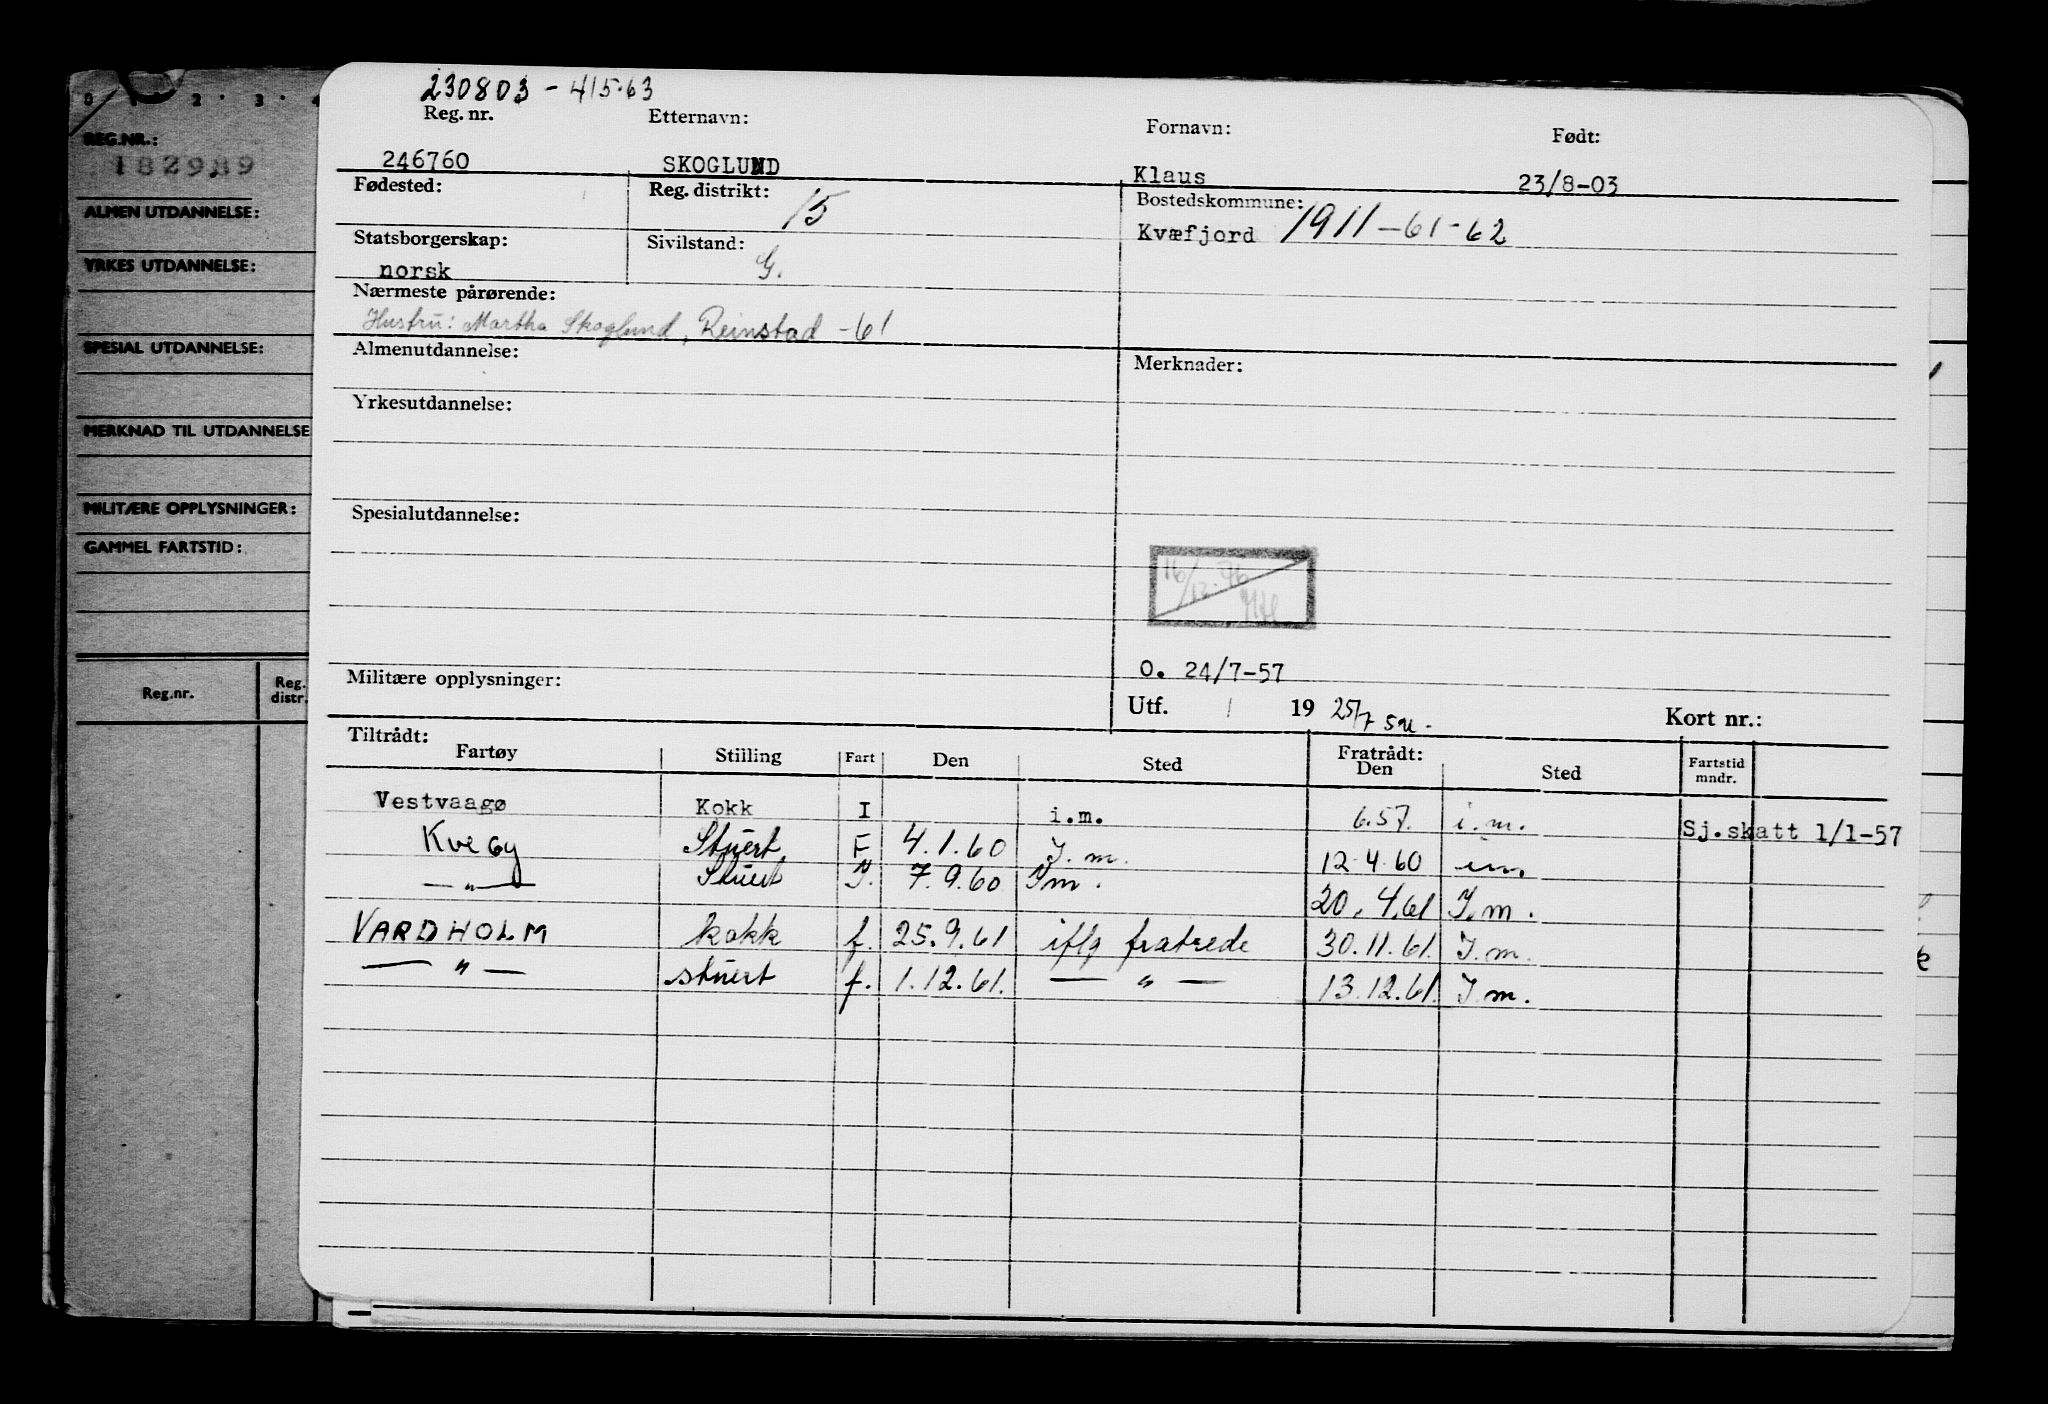 0 1 2 3 4
REG.NR.:
182989
ALMEN UTDANNELSE:
YRKES UTDANNELSE:
SPESIAL UTDANNELSE:
MERKNAD TIL UTDANNELSE
MILITÆRE OPPLYSNINGER:
GAMMEL FARTSTID:
Reg.nr. Reg. distr.
230803 - 415.63
Reg. nr. Etternavn: Fornavn: Født:
246760 SKOGLUND Klaus 23/8-03
Fødested: Reg. distrikt: 15 Bostedskommune:
Kvæfjord 1911-61-62
Statsborgerskap: Sivilstand:
norsk G.
Nærmeste pårørende:
Hustru: Martha Skoglund, Reinstad -61
Almenutdannelse: Merknader:
Yrkesutdannelse:
Spesialutdannelse:
16/12-76
O. 24/7-57
Militære opplysninger: Utf. / 19 25/7 Kort nr.:
Tiltrådt: Fratrådt:
Fartøy Stilling Fart Den Sted Den Sted Fartstid mndr.
Vestvaagø Kokk I i.m. 6.57. i.m. Sj.skatt 1/1-57
Kveøy Stuert F 4.1.60 I.m. 12.4.60 i.m.
— " — Stuert I. 7.9.60 I.m. 20.4.61 I.m.
VARDHOLM kokk f. 25.9.61 iflg fratrede 30.11.61. I.m.
— " — stuert f. 1.12.61. — " — 13.12.61. I.m.